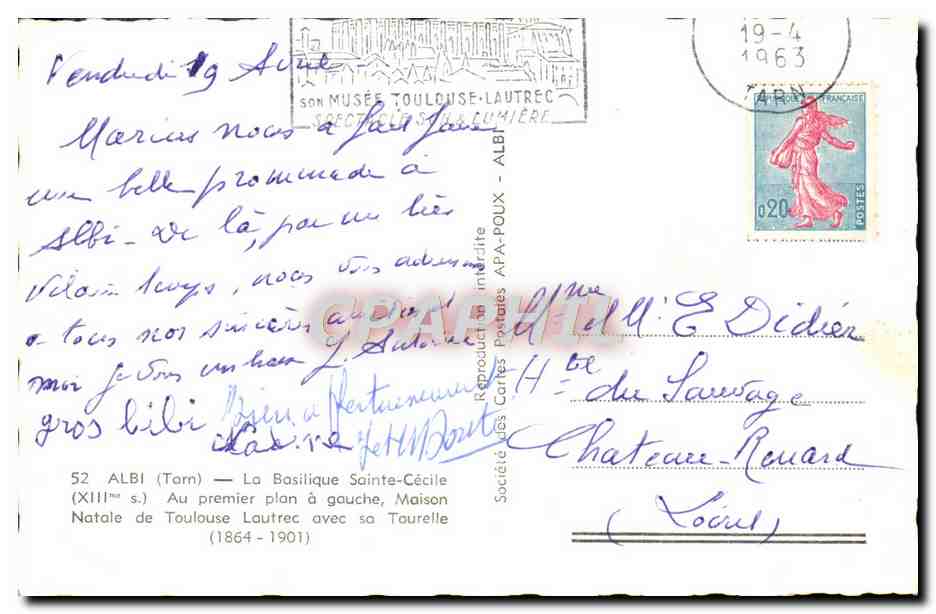 Vendredi 19 Avril
Marius nous a fait faire
une belle promenade à
Albi - De là, par un très
vilain temps, nous vous adressons
à tous nos sincères amitiés
moi je vous embrasse J. Antoine
gros bibi
Bien affectueusement
52 ALBI (Tarn) — La Basilique Sainte-Cécile
(XIIIme s.) Au premier plan à gauche, Maison
Natale de Toulouse Lautrec avec sa Tourelle
(1864 - 1901)
SON MUSÉE TOULOUSE-LAUTREC
SPECTACLE SON & LUMIÈRE
19-4
1963
TARN
FRANÇAISE
0,20
POSTES
Reproduction interdite
Société des Cartes Postales APA-POUX - ALBI
CPAPHIL
Mme et Mr E Didier
Hte du Sauvage
Chateau-Renard
(Loiret)